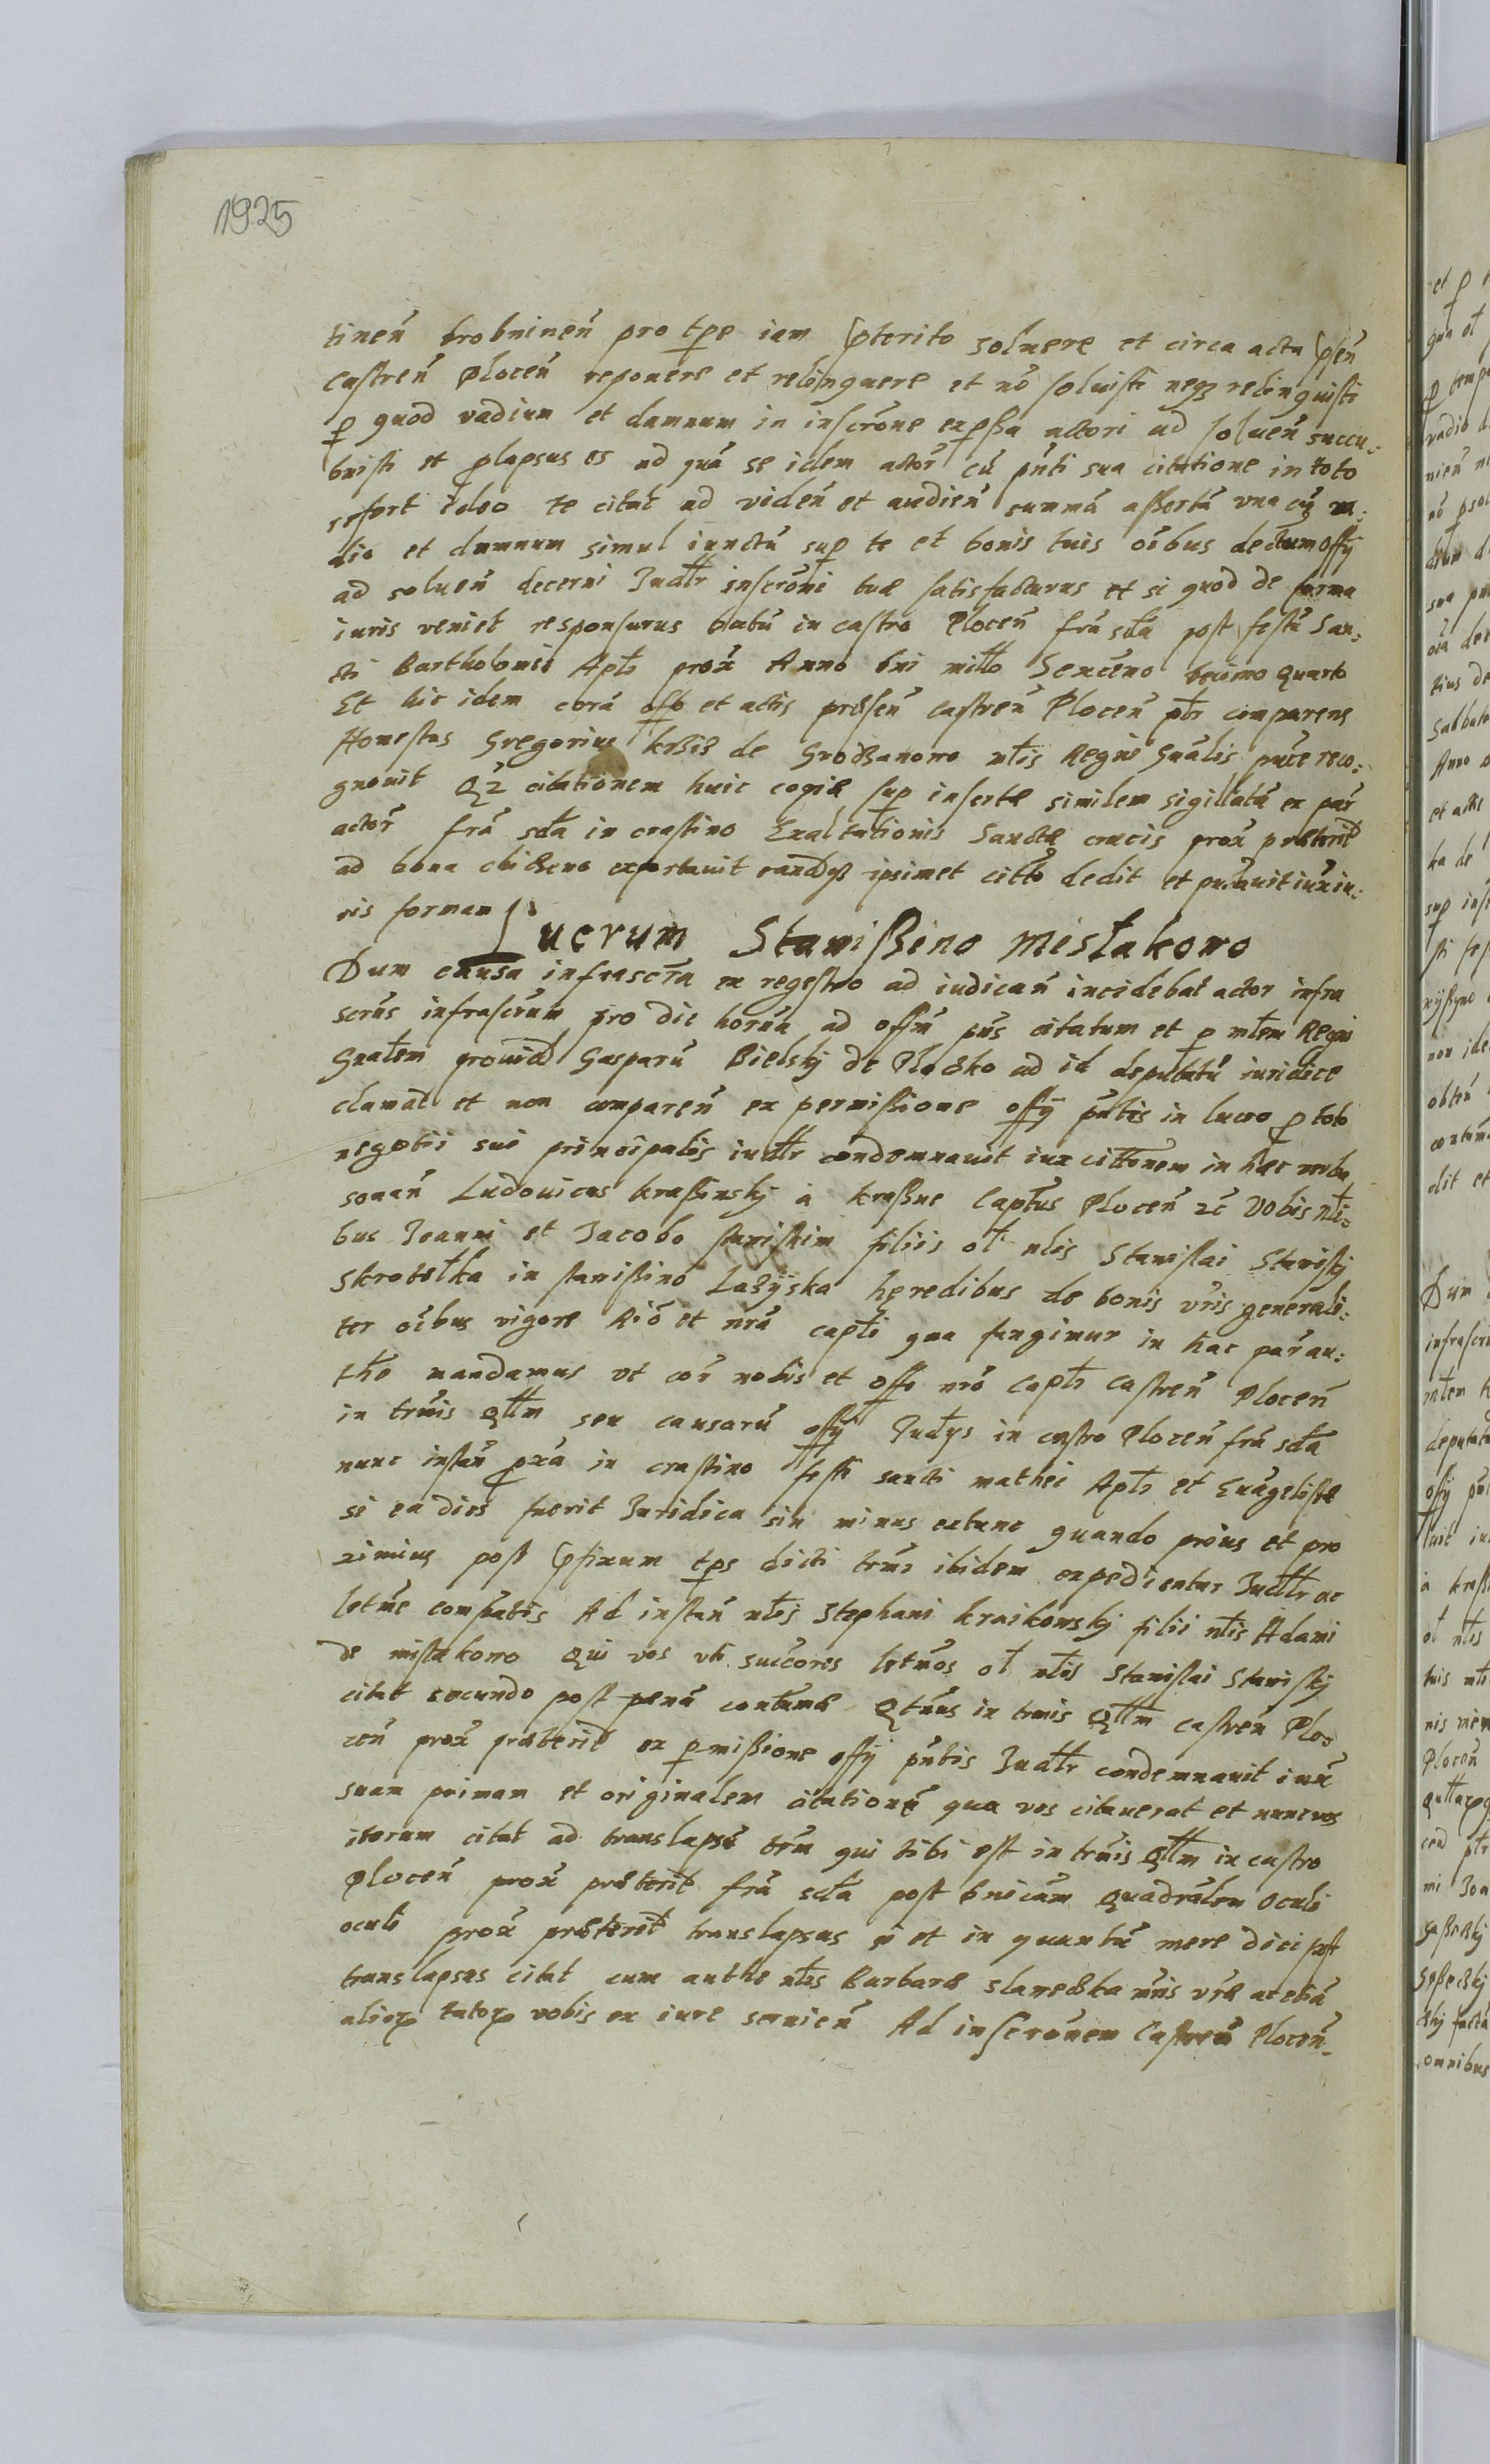 1925
tineñ drobnineñ pro tpe iam pterito solvere et circa acta pseñ
Castreñ Ploceñ reponere et relinquere et nõ soluisti neqз relinquisti
p quod vadium et damnum in inscrõne expßa actori ad solueñ succu:
buisti et plapsus es ad quã se idem actor cũ pñti sua citatione in toto
refert ideo te citat ad videñ et audieñ summã aßertã vna cũ va:
dio et damnum simul iunctũ sup te et bonis tuis oĩbus dectum offŷ
ad solueñ decerni Judtr inscrõni tuæ satisfacturus et si quod de forma
iuris veniet responsurus datũ in castro Ploceñ frã sda post festũ San:
cti Bartholomei Apłi prox Anno dni millo Sexceno decimo quarto
Et hic idem corã offo et actis præseñ Castreñ Ploceñ ptr comparens
Honestus Gregorius de mtis Regni Gnãlis pute reco:
gnouit Qz citationem huic copiæ sup insertæ similem sigillatã ex par
actor frã sda in crastino Exaltationis Sanctæ crucis prox præterit
ad bona exportauit ipsimet citto dedit et iux iu:
ris formam
Lucrum Stanißino Mistakowo
Dum causa infrascrã ex regestro ad iudicañ incidebat actor infra
scrũs infrascrum pro die horña ad offm pñs citatum et p mtem Regni
Gnałem prouid Gasparũ Bielskj de Plocko ad id deputatũ iuridice
clamat et non compareñ ex permißione offŷ pñtis in lucro p toto
negotii sui principalis iudtr condemnauit iux cittonem in hæc verba
sonañ Ludouicus kraßinskj à kraßne Captus Ploceñ zc Vobis nłi:
bus Joanni et Jacobo filiis oł nłis Stanislai Stanißkj
in stanißino heredibus de bonis vr̃is generali:
ter oĩbus vigore Riõ et nrã captã qua fungimur in hac par au:
thẽ mandamus vt corã nobis et offo nrõ Captł castreñ Ploceñ
in trm̃is Qttm seu causarũ offŷ in castro Ploceñ frã sda
nunc instañ pxã in crastino festi sancti mathei Apłi et Euãgelistæ
si ea dies fuerit Juridica sin minus extunc quando prius et pro
ximius post pfixum tps dicti trm̃i ibidem expedientur Judtr ac
letm̃e compatis Ad instañ nłis Stephani kraikowskj filii nłis Adami
de mistakowo Qui vos vti succores letm̃os oł nłis Stanislai Stanißkj
citat secundo post penã contumæ Qtnus in trm̃is Qttm castreñ Plo:
ceñ prox præterit ex pmißione offŷ pñtis Judtr condemnauit iux
suam primam et originalem citationẽ qua vos citauerat et nunc vos
iterum citat ad translapsũ trm̃ qui tibi est in trm̃is Qttm in castro
Ploceñ prox præterit frã scda post dnicam Quadrałem Oculi
oculi prox præterit translapsus si et in quantũ mere dici pot
translapsus citat cum authe nłis Barbaræ mr̃is vræ ac etiã
aliorꝝ tutorꝝ vobis ex iure seruieñ Ad inscrõnem Castreñ Ploceñ